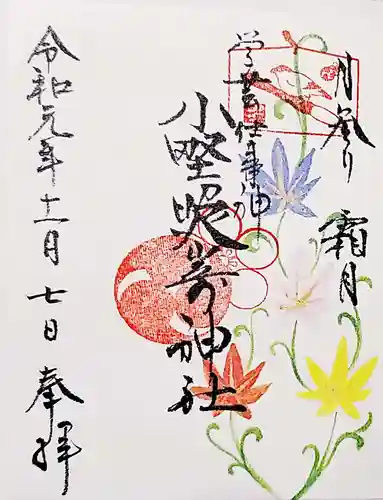 月参り
霜月
学芸仕事の神
小野照崎神社
令和元年十一月七日 奉拝